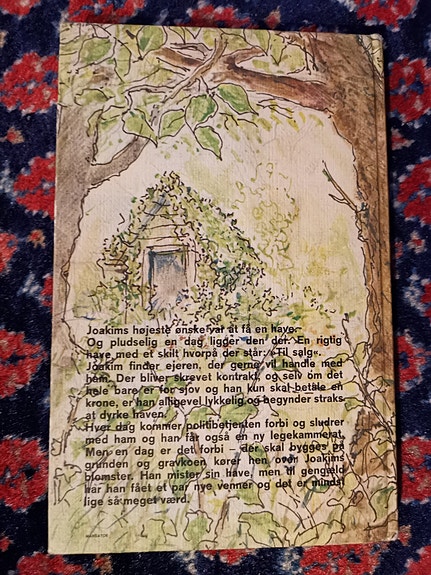 Joakims højeste ønske var at få en have.
Og pludselig en dag ligger den der. En rigtig
have med et skilt hvorpå der står: »Til salg«.
Joakim finder ejeren, der gerne vil handle med
ham. Der bliver skrevet kontrakt, og selv om det
hele bare er for sjov og han kun skal betale en
krone, er han alligevel lykkelig og begynder straks
at dyrke haven.
Hver dag kommer politibetjenten forbi og sludrer
med ham og han får også en ny legekammerat.
Men en dag er det forbi – der skal bygges på
grunden og gravkoen kører hen over Joakims
blomster. Han mister sin have, men til gengæld
har han fået et par nye venner og det er mindst
lige så meget værd.